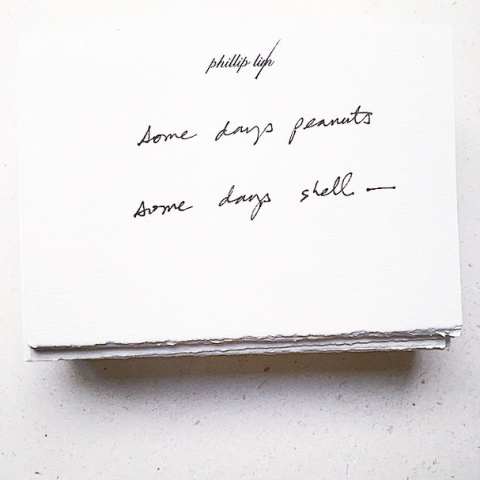 phillip lim
some days peanuts
some days shell —